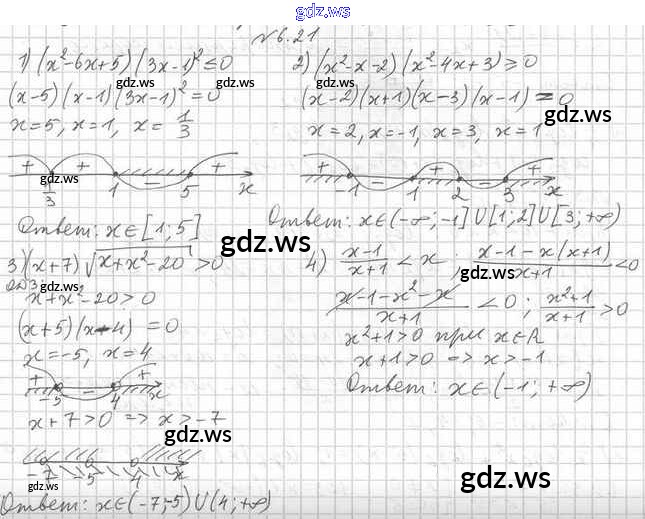 gdz.ws
№6.21
1) (x²-6x+5)(3x-1)² ≤ 0
gdz.ws
(x-5)(x-1)(3x-1)² = 0
x=5, x=1, x= 1/3
+ + - +
gdz.ws
1/3 1 5 x
Ответ: x∈[1;5]
gdz.ws
2) (x²-x-2)(x²-4x+3) ≥ 0
gdz.ws
(x-2)(x+1)(x-3)(x-1) = 0
gdz.ws
x=2, x=-1, x=3, x=1
+ - + - +
-1 1 2 3 x
Ответ: x∈(-∞;-1]∪[1;2]∪[3;+∞)
3) (x+7)√x+x²-20 > 0
gdz.ws
ОДЗ
x+x²-20>0
(x+5)(x-4) = 0
x=-5, x=4
gdz.ws
+ - +
-5 4 x
x+7>0 => x>-7
gdz.ws
-7 -5 4 x
gdz.ws
Ответ: x∈(-7;-5)∪(4;+∞)
gdz.ws
4) x-1/x+1 < x ; x-1-x(x+1)/x+1 < 0
gdz.ws
x-1-x²-x/x+1 < 0 ; x²+1/x+1 > 0
x²+1>0 при x∈R
x+1>0 => x>-1
Ответ: x∈(-1;+∞)
gdz.ws
gdz.ws